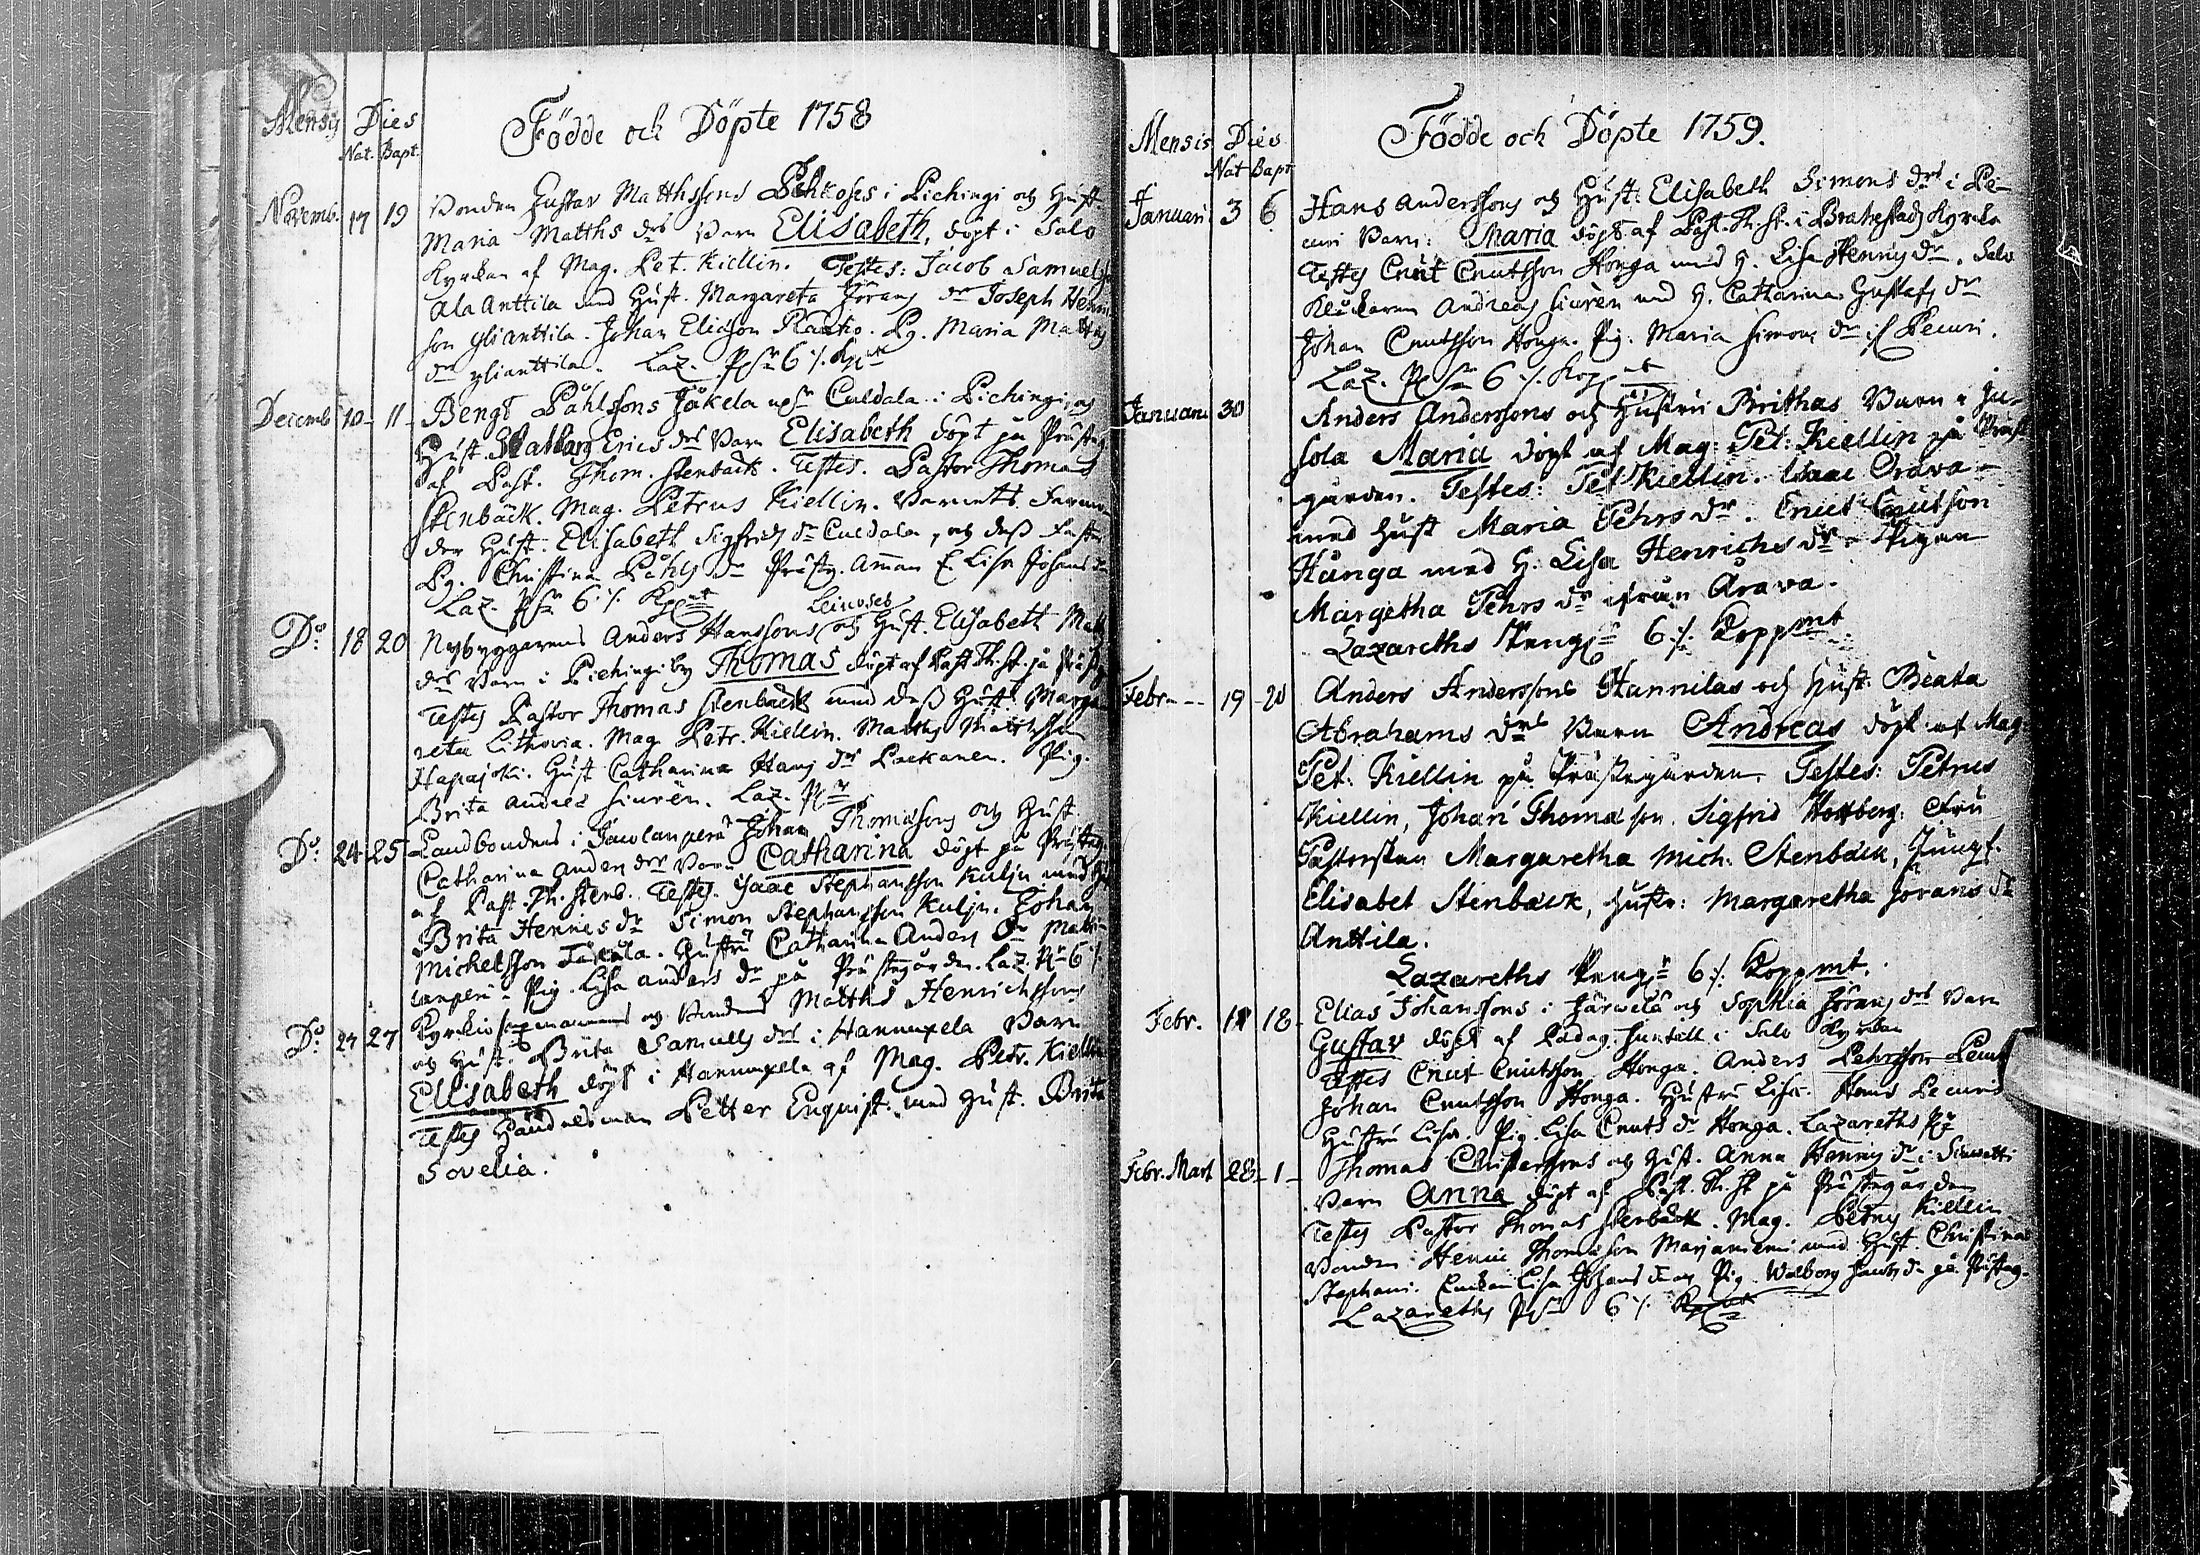 Mensis Dies
Nat. Bapt.
Födde och Döpte 1758
Novemb. 17 19 Bonden Gustav Matthssons Pehkoses i Pichingi och Hust.
Maria Matths drs Barn Elisabeth, döpt i Salo
Kyrckan af Mag. Pet. Kiellin. Testes: Jacob Samuelss.
Ala Anttila med Hust. Margareta Görans dr Joseph Henr
son Ylianttila. Johan Eliæson Rauhio. Pg. Maria Matths
dr Ylianttila. Laz. Pgr 6 ./. Kpmt
Decemb 10 - 11 - Bengt Påhlssons Jåkela Culdala i Pichingi och
Hust. Erics drs Barn Elisabeth döpt på Prästeg
af Past. Thom. Stenbäck. Testes. Pastor Thomas
Stenbäck. Mag. Petrus Kiellin. Barnets Farmo
der Hust: Elisabeth Sigfrids dr Culdala, och dess Fast
Pg. Christina Påhls dr Prästg. Amman E. Lisa Johans dr
Laz. Pgr 6 ./. Kpmt
Leinoses
Do 18 20 Nybyggarens Anders Hanssons och Hust. Elisabeth Matt
drs Barn i Pichingi by Thomas döpt af Past Th. St. på Prästg
Testes Pastor Thomas Stenbäck med dess Hust. Marga
reta Lithovia. Mag Petr. Kiellin. Matths Mattsson
Hapajoki. Hust Catharina Hans dr Packanen. Pig.
Brita Andreæ Siurén. Laz. Pgr
Do 24 25 Landbondens i Savolanperä Johan Thomæsons och Hust.
Catharina Anders drs Barn Catharina döpt på Prästeg.
af Past. Th. Stenb. Testes. Isaac Stephansson Kulju med H
Brita Hennes dr Simon Stephansson Kulju. Johan
Michelsson Tuckula. Hustru Catharina Anders dr Matti
lanperä. Pig. Lisa Anders dr på Prästegården. Laz. Pgr 6 ./.
Do 24 27 Kyrckio och Bondens Matths Henrichssons
och Hust. Brita Samuels drs i Hannuxela Barn
Elisabeth döpt i Hannuxela af Mag. Petr. Kiellin
Testes Länsman Petter Enquist med Hust. Brita
Sovelia.
Mensis Dies
Nat Bapt
Födde och Döpte 1759.
Januari 3 6 Hans Anderssons och Hust: Elisabeth Simons drs i Pe-
curi Barn: Maria döpt af Past. Th. St. i Brahestads Kyrcka
Testes Cnut Cnutsson Honga med H. Lisa Hennes dr. Salo
Kluckaren Andreas Siurén med H. Catharina Gustafs dr
Johan Cnutsson Honga. Pig: Maria Simons dr Pecuri.
Laz. Pgr 6 ./. Koppmt
Januarii 30 Anders Anderssons och Hustru Brithas Barn i Ju-
sola Maria döpt af Mag: Pet: Kiellin på Präst
gården. Testes: Pet Kiellin. Isaac Orava
med Hust Maria Pehrs dr. Cnut Cnutson
Hunga med H: Lisa Henrichs dr Pigan
Margetha Pehrs dr ifrån Orava.
Lazareths Pengr 6 ./. Koppmt
Febr. - - 19 - 20 Anders Anderssons Hannilas och Hust: Beata
Abrahams drs Barn Andreas döpt af Mag
Pet: Kiellin på Prästegården Testes: Petrus
Kiellin, Johan Thomæson. Sigfrid Hortberg: Fru
Pastorskan Margaretha Mich. Stenbäck, Jungf.
Elisabet Stenbäck, Hustr: Margaretha Jörans dr
Anttila.
Lazareths Pengr 6 ./. Koppmt.
Febr. 18 Elias Johanssons i Järwelä och Sophia Jörans drs Barn
Gustav döpt af Pædag. i Salo Kyrckan
Testes Cnut Cnutsson Honga. Anders Pehrsson Pecuri
Johan Cnutsson Honga. Hustru Lisa. Hans Pecuris
Hustru Lisa. Pig. Lisa Cnuts dr Honga. Lazareths Pgr
Febr. Mart 28 - 1 - Thomas Christerssons och Hust. Anna Hennes dr i
Barn Anna döpt af Past. Th. St på Prästegården
Testes Pastor Thomas Stenbäck. Mag. Petrus Kiellin
Bonden Henric Thomæson Marjaniemi med Hust. Christina
Stephani. Lisa Johans dr och Pig. Walborg Jacobs dr på Prästeg.
Lazareths Pgr 6 ./. Kpmt